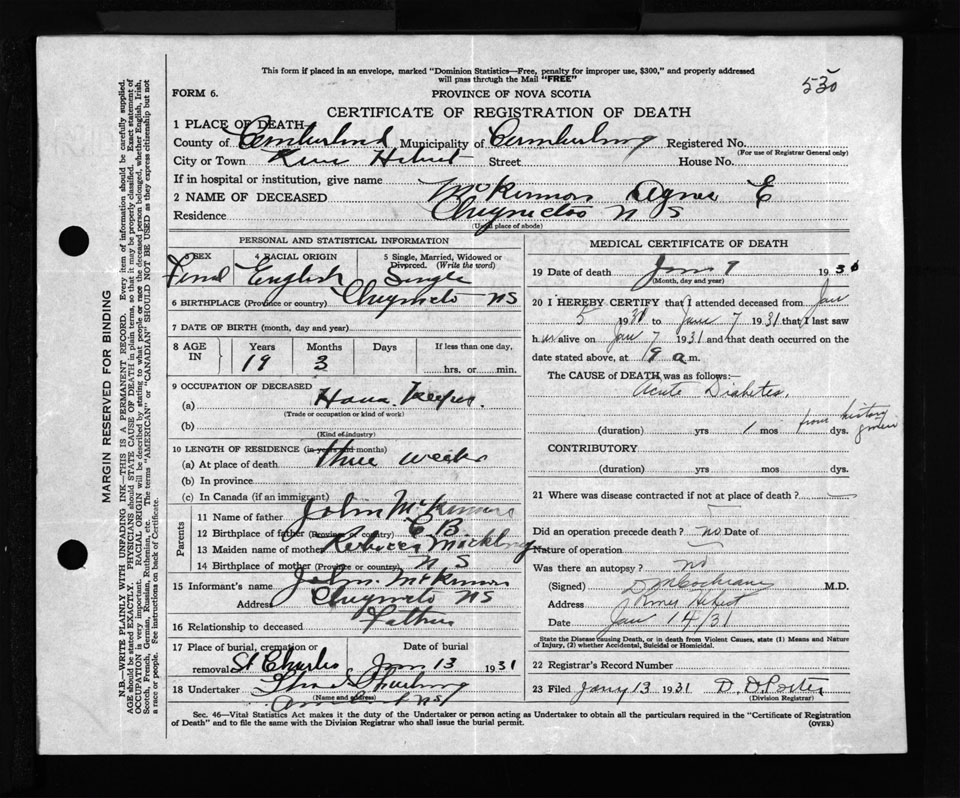 This form if placed in an envelope, marked "Dominion Statistics—Free, penalty for improper use, $300," and properly addressed
will pass through the Mail "FREE"
530
FORM 6.
PROVINCE OF NOVA SCOTIA
CERTIFICATE OF REGISTRATION OF DEATH
1 PLACE OF DEATH
County of Cumberland Municipality of Cumberland Registered No.
(For use of Registrar General only)
City or Town River Hebert Street House No.
If in hospital or institution, give name
2 NAME OF DECEASED McKinnon Agnes E
Residence Chignecto N S
(Usual place of abode)
PERSONAL AND STATISTICAL INFORMATION
3 SEX 4 RACIAL ORIGIN 5 Single, Married, Widowed or Divorced. (Write the word)
English Single
6 BIRTHPLACE (Province or country) Chignecto NS
7 DATE OF BIRTH (month, day and year)
8 AGE IN Years Months Days If less than one day,
19 3 hrs. or min.
9 OCCUPATION OF DECEASED
(a) House Keeper.
(Trade or occupation or kind of work)
(b)
(Kind of industry)
10 LENGTH OF RESIDENCE (in years and months)
(a) At place of death three weeks
(b) In province
(c) In Canada (if an immigrant)
Parents
11 Name of father John McKinnon
12 Birthplace of father (Province or country) C B
13 Maiden name of mother Rebecca
14 Birthplace of mother (Province or country) N S
15 Informant's name John McKinnon
Address Chignecto NS
16 Relationship to deceased Father
17 Place of burial, cremation or removal St Charles Date of burial Jan 13 1931
18 Undertaker
(Name and address)
Amherst NS
MEDICAL CERTIFICATE OF DEATH
19 Date of death Jan 9 193
(Month, day and year)
20 I HEREBY CERTIFY that I attended deceased from Jan
5 1931 to Jan 7 1931 that I last saw
h er alive on Jan 7 1931 and that death occurred on the
date stated above, at 9 a m.
The CAUSE of DEATH was as follows:—
Acute Diabetes.
(duration) yrs 1 mos dys. from history given
CONTRIBUTORY
(duration) yrs. mos. dys.
21 Where was disease contracted if not at place of death?
Did an operation precede death? no Date of
Nature of operation
Was there an autopsy? no
(Signed) D M Cochrane M.D.
Address River Hebert
Date Jan 14/31
State the Disease causing Death, or in death from Violent Causes, state (1) Means and Nature
of Injury, (2) whether Accidental, Suicidal or Homicidal.
22 Registrar's Record Number
23 Filed Jany 13 1931 D. D. Porter
(Division Registrar)
Sec. 46—Vital Statistics Act makes it the duty of the Undertaker or person acting as Undertaker to obtain all the particulars required in the "Certificate of Registration
of Death" and to file the same with the Division Registrar who shall issue the burial permit.
(OVER)
MARGIN RESERVED FOR BINDING
N.B.—WRITE PLAINLY WITH UNFADING INK—THIS IS A PERMANENT RECORD. Every item of information should be carefully supplied.
AGE should be stated EXACTLY. PHYSICIANS should STATE CAUSE OF DEATH in plain terms, so that it may be properly classified. Exact statement of
OCCUPATION is very important. RACIAL ORIGIN will be described by stating to what people or race the deceased person belonged, whether English, Irish,
Scotch, French, German, Russian, Ruthenian, etc. The terms "AMERICAN" or "CANADIAN" SHOULD NOT BE USED as they express citizenship but not
a race or people. See instructions on back of Certificate.